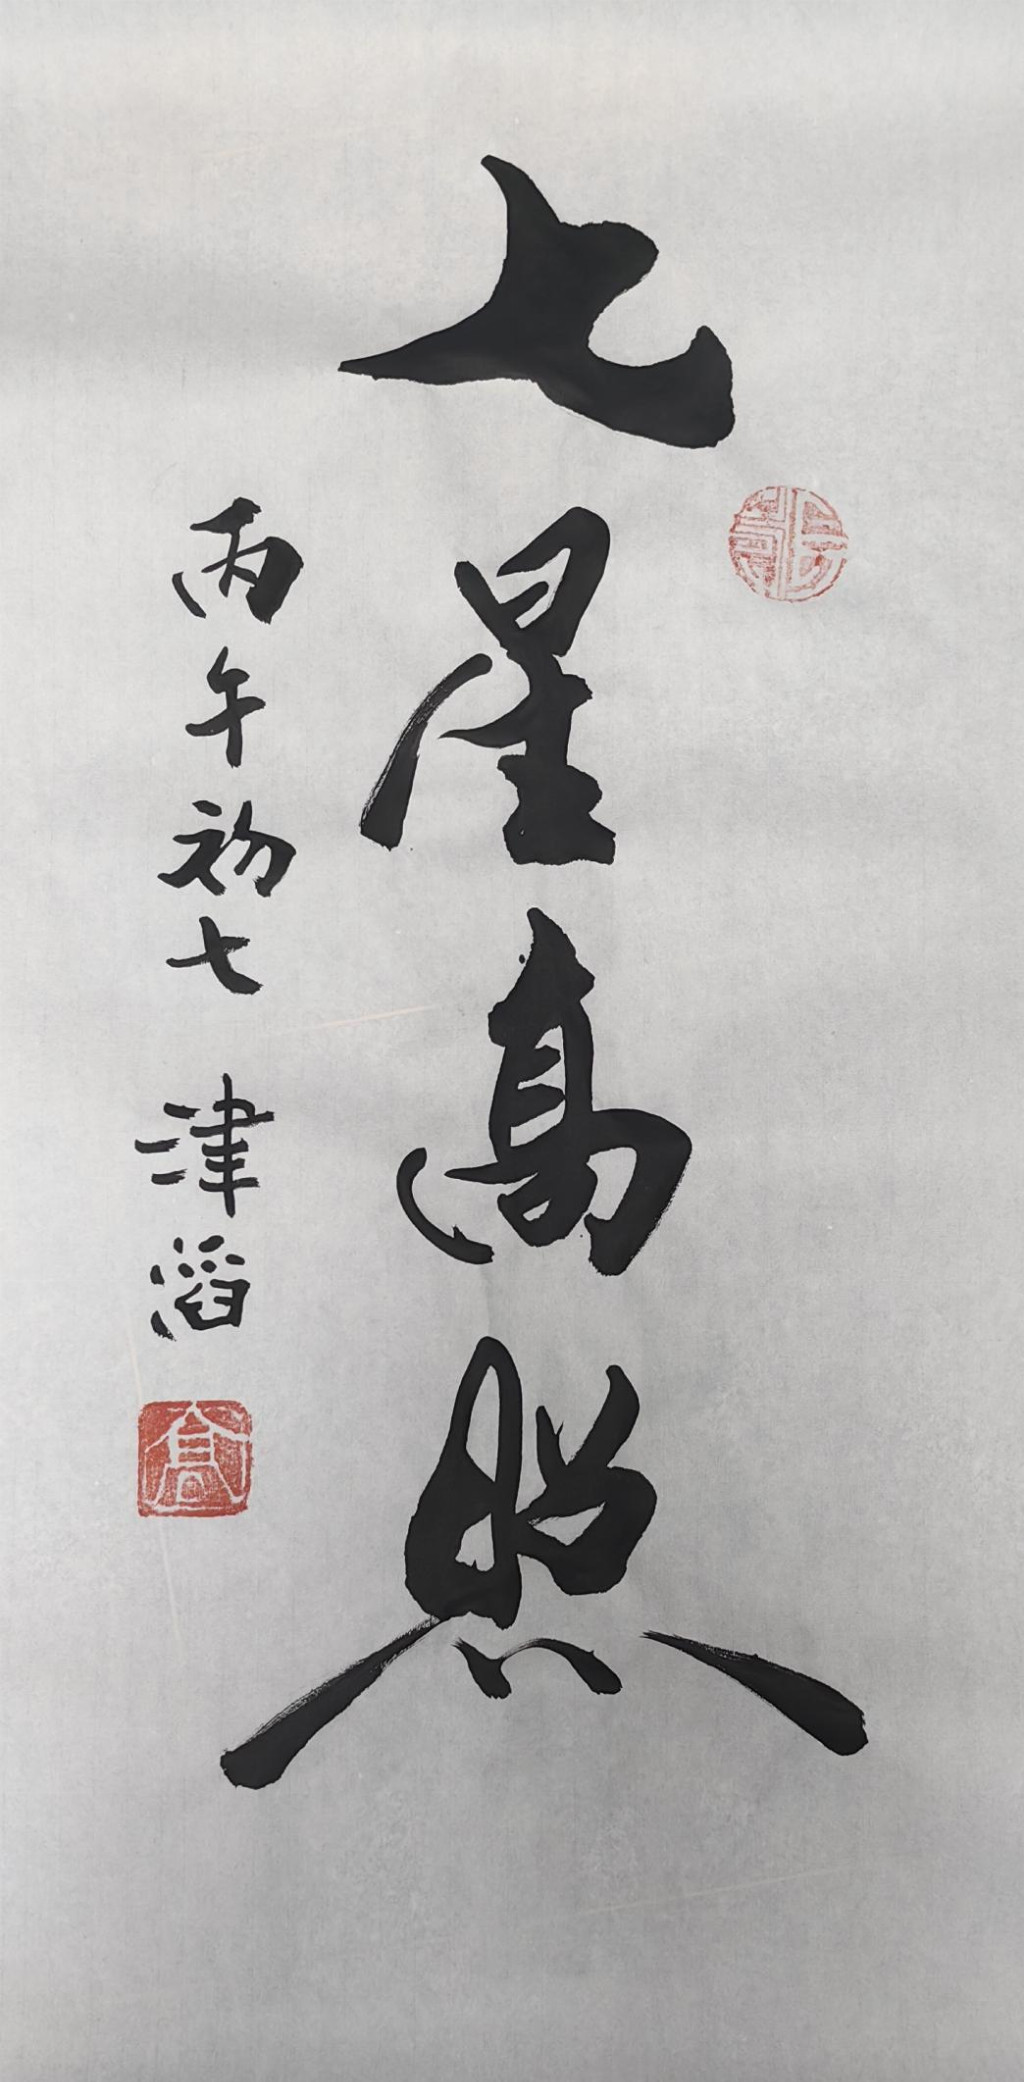 七星高照
丙午初七 津滔
高